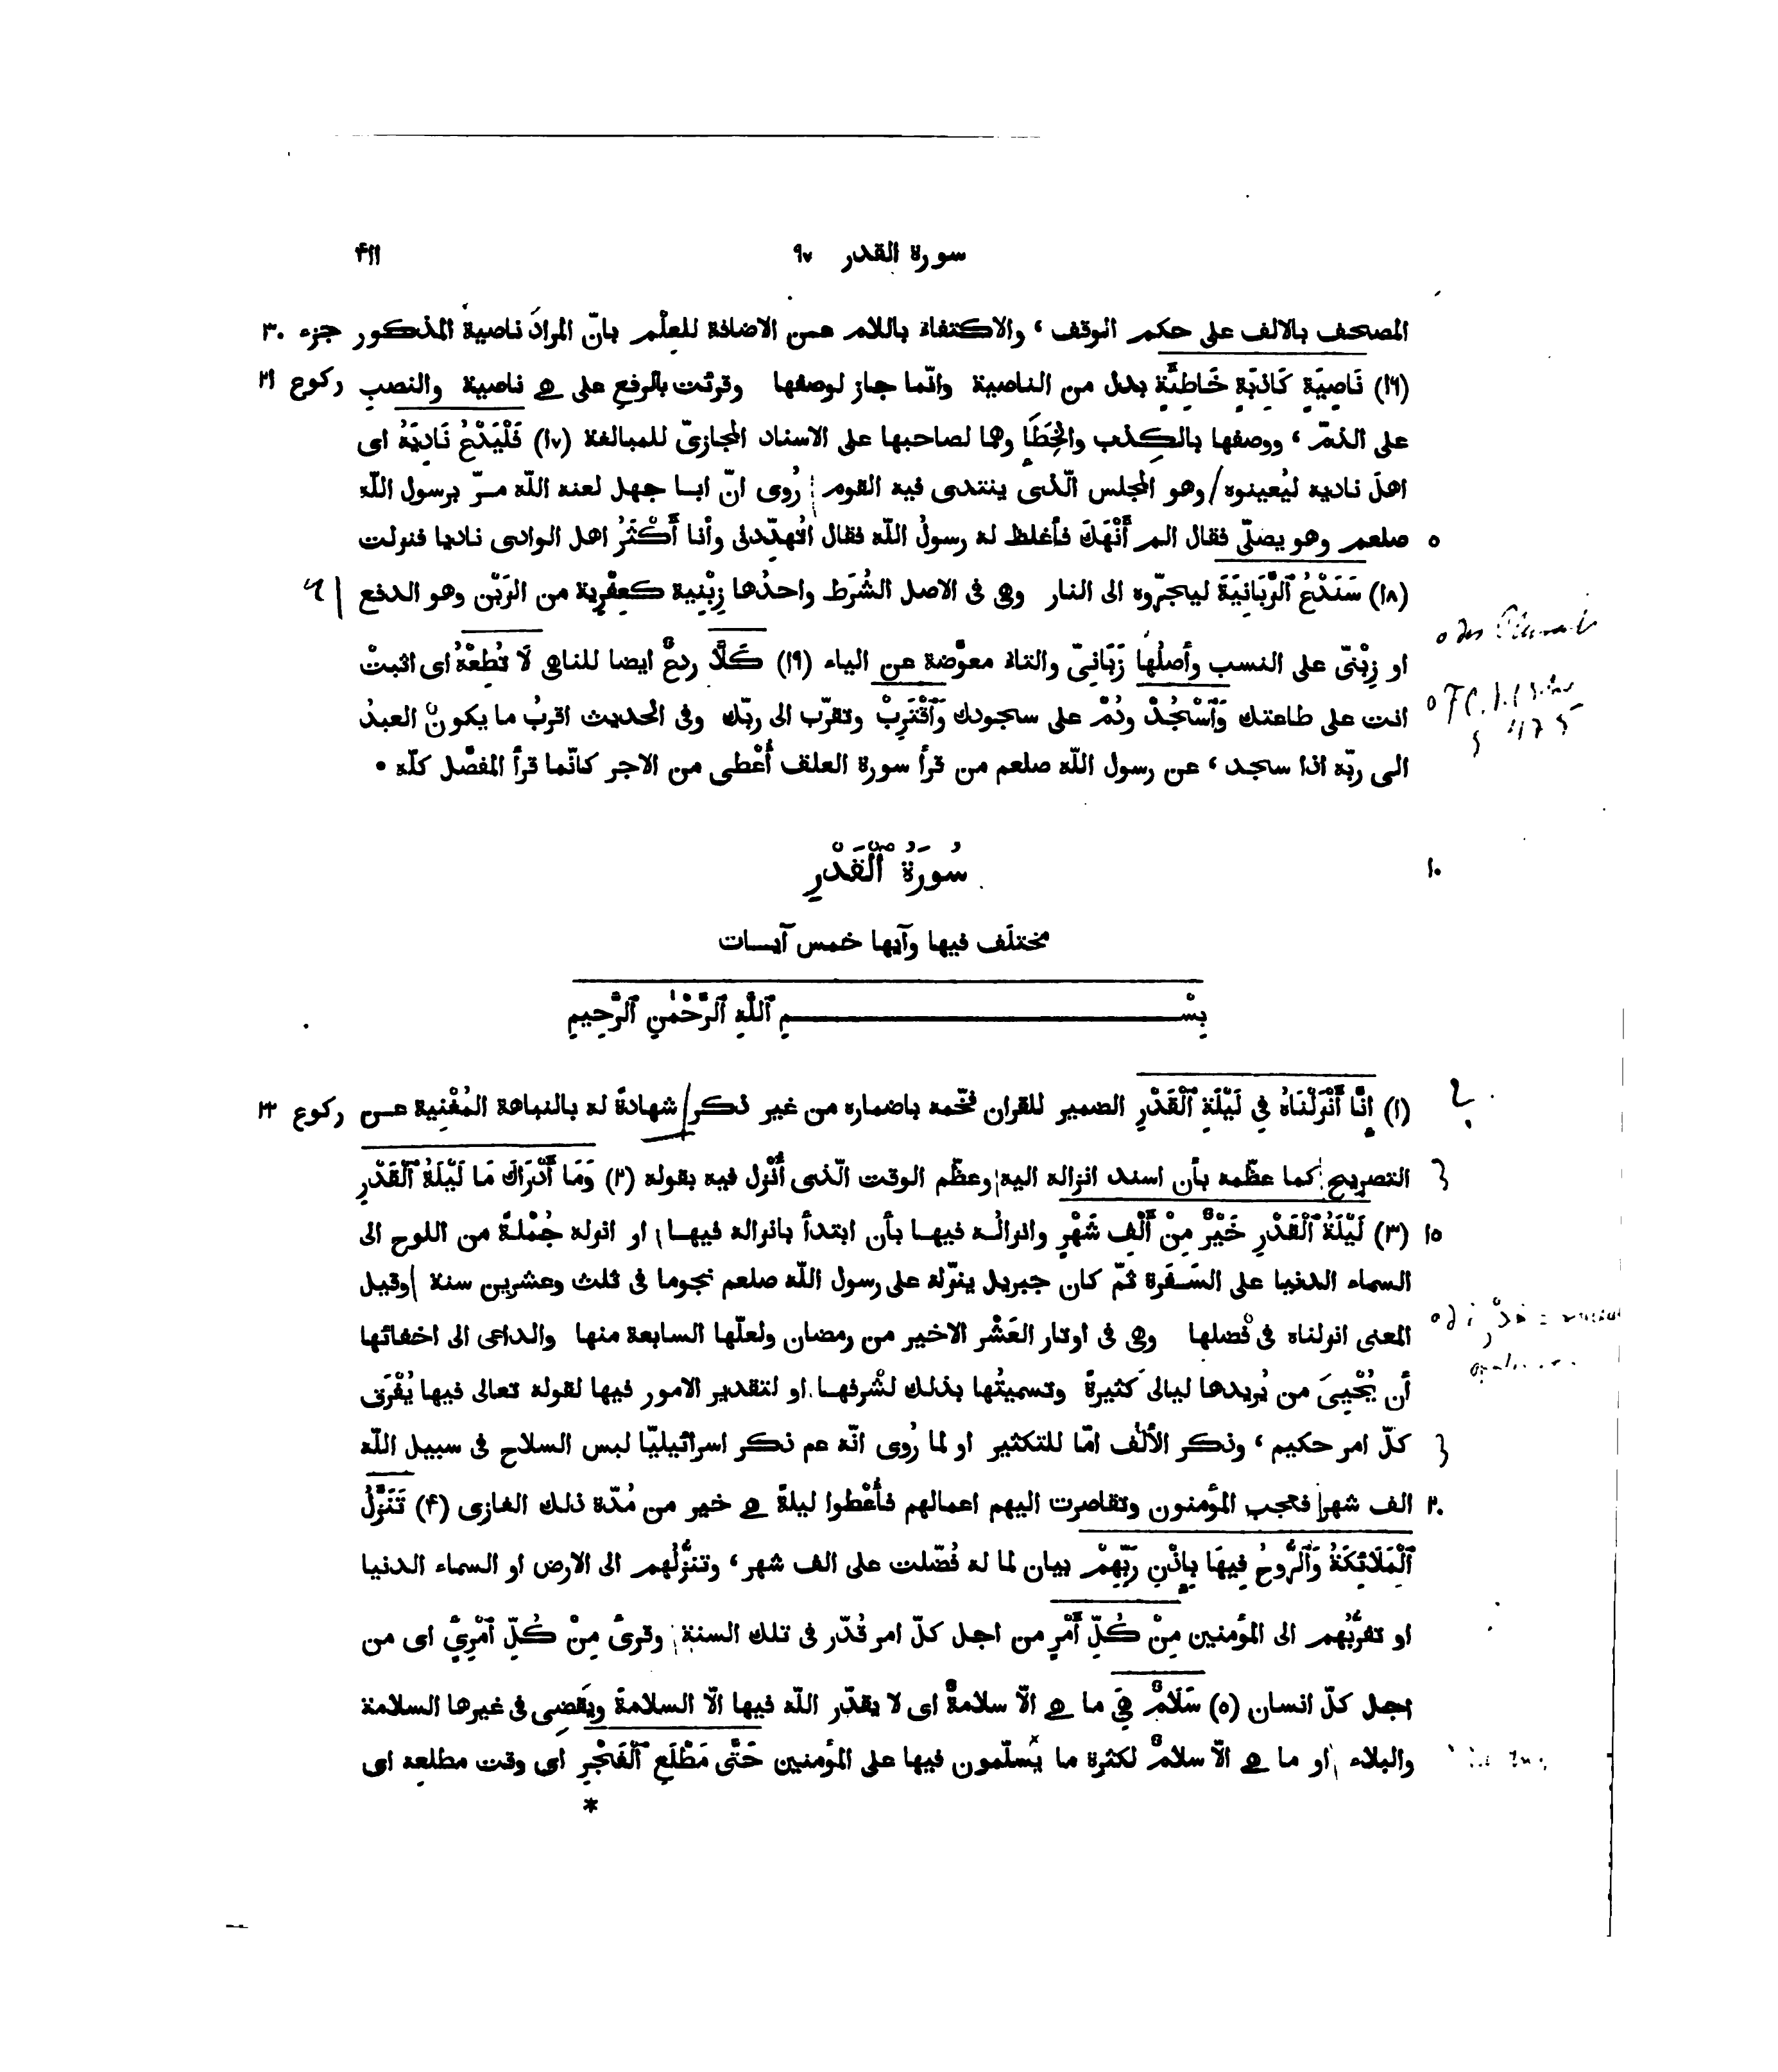 سورة القدر ٩٧ ۴١١
المصحف بالالف على حكم الوقف، والاكتفاء باللام عن الاضافة للعِلْم بانّ المرادَ ناصية المذكور جزء ٣٠
(١٦) نَاصِيَةٍ كَاذِبَةٍ خَاطِئَةٍ بدل من الناصية وانّما جاز لوصفها وقرئت بالرفع على هى ناصية والنصبِ ركوع ٢١
على الذمّ، ووصفها بالكذب والخَطَإِ وهما لصاحبها على الاسناد المجازىّ للمبالغة (١٧) فَلْيَدْعُ نَادِيَهُ اى
اهلَ ناديه ليُعينوه وهو المجلس الّذى ينتدى فيه القوم رُوى انّ ابا جهل لعنه اللّه مرّ برسول اللّه
٥ صلعم وهو يصلّى فقال الم أَنْهَكَ فأغلظ له رسولُ اللّه فقال اتُهدّدنى وأنا أَكْثَرُ اهل الوادى ناديا فنزلت
(١٨) سَنَدْعُ ٱلزَّبَانِيَةَ ليجرّوه الى النار وهى فى الاصل الشُرَط واحدُها زِبْنِية كعِفْرِية من الزَبْن وهو الدفع
او زِبْنىّ على النسب وأصلُها زَبَانِىّ والتاء معوَّضة عن الياء (١٩) كَلَّا ردعٌ ايضا للناهى لَا تُطِعْهُ اى اثبتْ
انت على طاعتك وَٱسْجُدْ ودُمْ على سجودك وَٱقْتَرِبْ وتقرّب الى ربّك وفى الحديث اقربُ ما يكونْ العبدُ
الى ربّه اذا سجد، عن رسول اللّه صلعم من قرأ سورة العلق أُعْطى من الاجر كانّما قرأ المفصَّل كلّه •
سُورَةُ ٱلْقَدْرِ ١٠
مختلَف فيها وآيها خمس آيات
بِسْمِ ٱللَّهِ ٱلرَّحْمٰنِ ٱلرَّحِيمِ
(١) إِنَّا أَنْزَلْنَاهُ فِي لَيْلَةِ ٱلْقَدْرِ الضمير للقران فخّمه باضماره من غير ذكر شهادةً له بالنباهة المُغْنِية عن ركوع ٢٢
التصريح كما عظّمه بأن اسند انزاله اليه وعظّم الوقت الّذى أُنْزل فيه بقوله (٢) وَمَا أَدْرَاكَ مَا لَيْلَةُ ٱلْقَدْرِ
١٥ (٣) لَيْلَةُ ٱلْقَدْرِ خَيْرٌ مِنْ أَلْفِ شَهْرٍ وانزالُه فيها بأن ابتدأ بانزاله فيها او انزله جُمْلةً من اللوح الى
السماء الدنيا على السَفَرة ثمّ كان جبريل ينزّله على رسول اللّه صلعم نجوما فى ثلث وعشرين سنة وقيل
المعنى انزلناه فى فضلها وهى فى اوتار العَشْر الاخير من رمضان ولعلّها السابعة منها والداعى الى اخفائها
أن يُحْيِىَ من يُريدها ليالىَ كثيرةً وتسميتُها بذلك لشرفها او لتقدير الامور فيها لقوله تعالى فيها يُفْرَق
كلّ امر حكيم، وذكر الألْف امّا للتكثير او لما رُوى انّه عم ذكر اسرائيليّا لبس السلاح فى سبيل اللّه
٢٠ الف شهر فعجب المؤمنون وتقاصرت اليهم اعمالهم فأُعْطوا ليلةً هى خير من مُدّة ذلك الغازى (۴) تَنَزَّلُ
ٱلْمَلَائِكَةُ وَٱلرُّوحُ فِيهَا بِإِذْنِ رَبِّهِمْ بيان لما له فُضّلت على الف شهر، وتنزُّلُهم الى الارض او السماء الدنيا
او تقرُّبُهم الى المؤمنين مِنْ كُلِّ أَمْرٍ من اجل كلّ امر قُدّر فى تلك السنة وقرئ مِنْ كُلِّ ٱمْرِئٍ اى من
اجل كلّ انسان (٥) سَلَامٌ هِيَ ما هى الّا سلامةٌ اى لا يقدّر اللّه فيها الّا السلامةَ ويَقضى فى غيرها السلامة
والبلاء او ما هى الّا سلامٌ لكثرة ما يسلّمون فيها على المؤمنين حَتَّى مَطْلَعِ ٱلْفَجْرِ اى وقت مطلعه اى
*